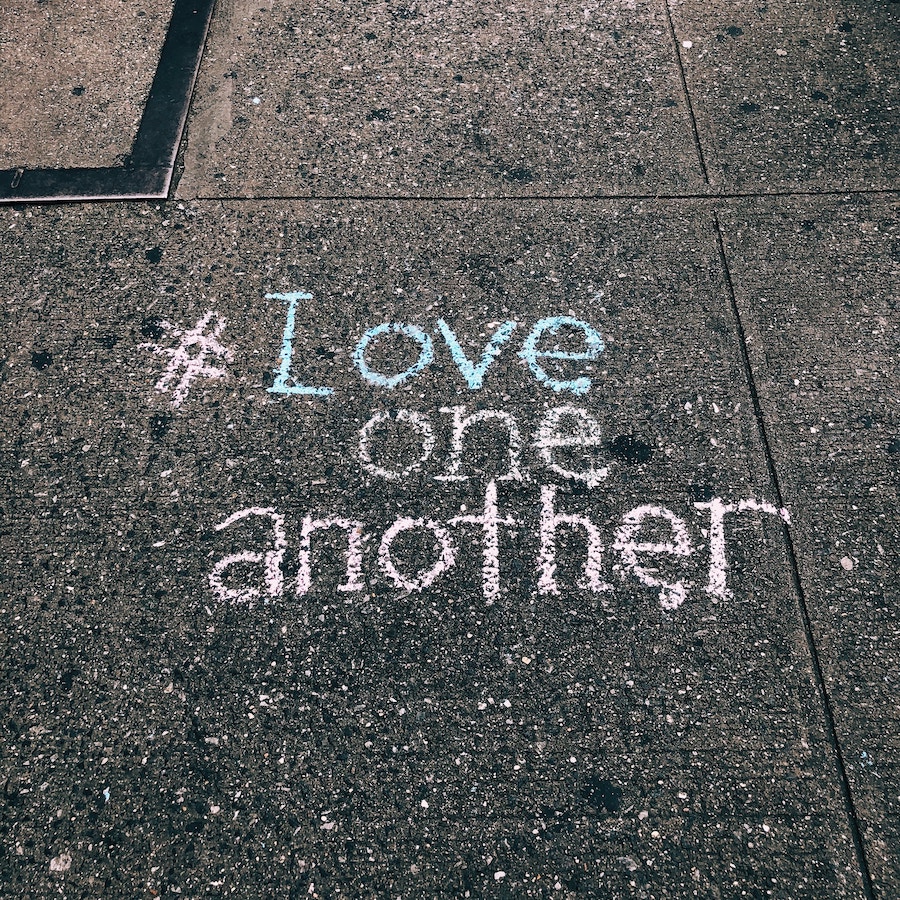 #Love
one
another